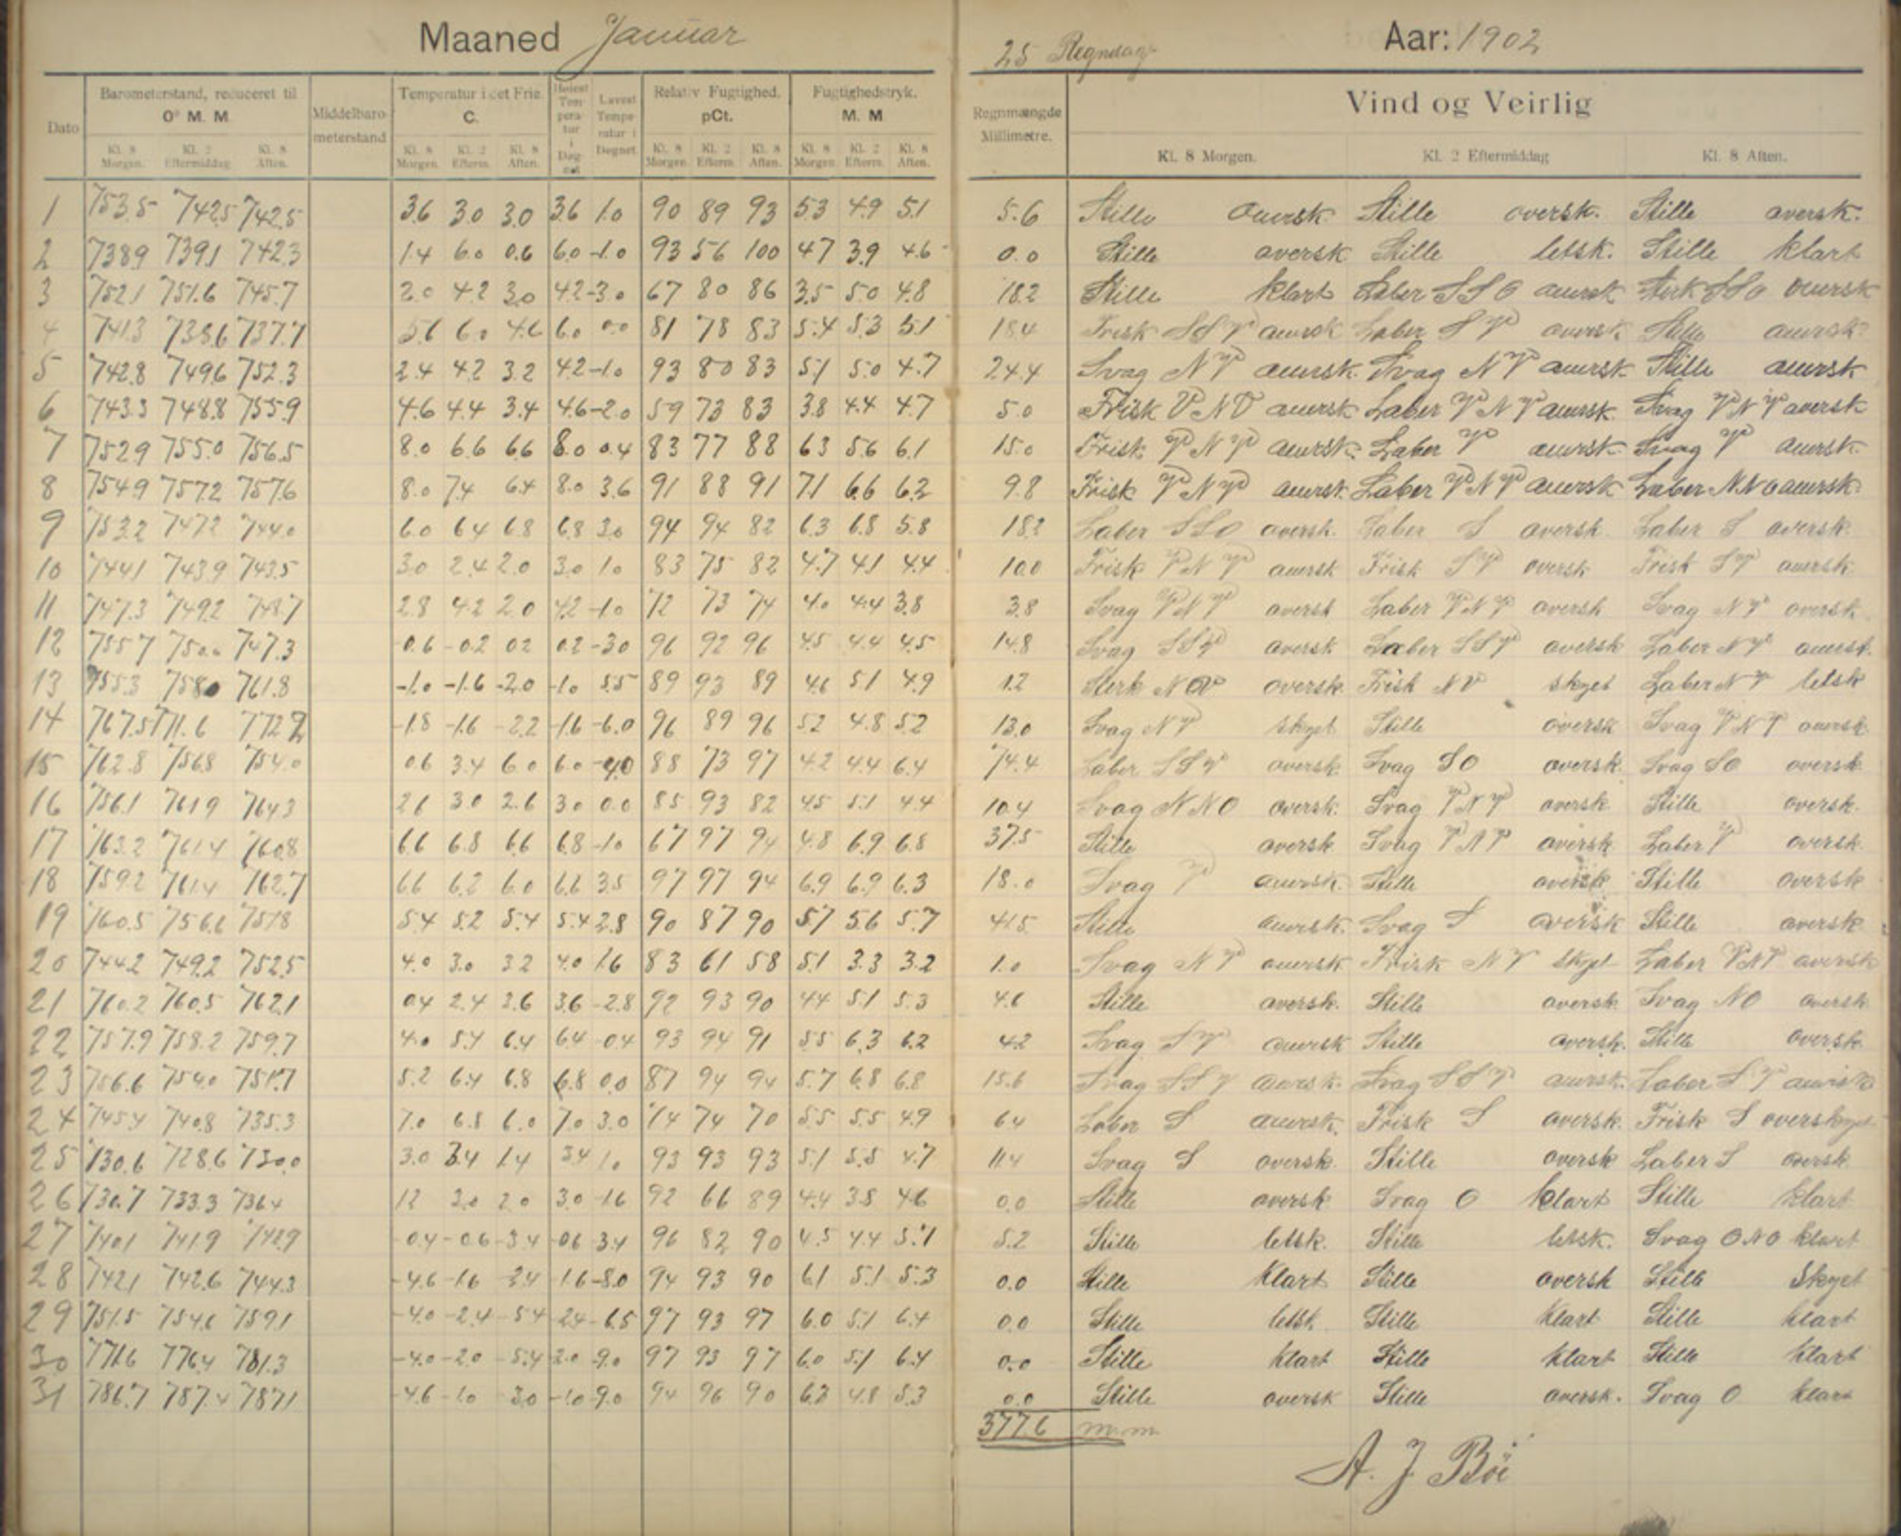 Maaned Januar
25 Regndage Aar: 1902
Dato Barometerstand, reduceret til 0° M. M Middelbarometerstand Temperatur i det Frie. C. Høiest Temperatur i Døgnet Lavest Temperatur i Døgnet Relativ Fugtighed. pCt. Fugtighedstryk. M. M Regnmængde Millimetre. Vind og Veirlig
Kl. 8 Morgen. Kl. 2 Eftermiddag Kl. 8 Aften. Kl. 8 Morgen. Kl. 2 Efterm. Kl. 8 Aften. Kl. 8 Morgen. Kl. 2 Efterm. Kl. 8 Aften. Kl. 8 Morgen. Kl. 2 Efterm. Kl. 8 Aften. Kl. 8 Morgen. Kl. 2 Eftermiddag Kl. 8 Aften.
1 753.5 742.5 742.5 3.6 3.0 3.0 3.6 1.0 90 89 93 5.3 4.9 5.1 5.6 Stille oversk. Stille oversk. Stille oversk.
2 738.9 739.1 742.3 1.4 6.0 0.6 6.0 -1.0 93 56 100 4.7 3.9 4.6 0.0 Stille oversk Stille letsk. Stille klart
3 752.1 751.6 745.7 2.0 4.2 3.0 4.2 -3.0 67 80 86 3.5 5.0 4.8 18.2 Stille klart Laber SSO oversk Sterk SSO oversk
4 741.3 738.6 737.7 5.6 6.0 4.6 6.0 0.0 81 78 83 5.4 5.3 5.1 18.4 Frisk SSV oversk Laber SV oversk. Stille oversk.
5 742.8 749.6 752.3 2.4 4.2 3.2 4.2 -1.0 93 80 83 5.1 5.0 4.7 24.4 Svag NV oversk. Svag NV oversk. Stille oversk
6 743.3 748.8 755.9 4.6 4.4 3.4 4.6 -2.0 59 73 83 3.8 4.4 4.7 5.0 Frisk VNV oversk Laber VNV oversk. Svag VNV oversk
7 752.9 755.0 756.5 8.0 6.6 6.6 8.0 0.4 83 77 88 6.3 5.6 6.1 15.0 Frisk VNV oversk. Laber V oversk. Svag V oversk.
8 754.9 757.2 757.6 8.0 7.4 6.4 8.0 3.6 91 88 91 7.1 6.6 6.2 9.8 Frisk VNV oversk Laber VNV oversk Laber NNO oversk
9 753.2 747.2 744.0 6.0 6.4 6.8 6.8 3.0 94 94 82 6.3 6.8 5.8 18.2 Laber SSO oversk. Laber S oversk. Laber S oversk.
10 744.1 743.9 743.5 3.0 2.4 2.0 3.0 1.0 83 75 82 4.7 4.1 4.4 10.0 Frisk VNV oversk Frisk SV oversk Frisk SV oversk.
11 747.3 749.2 748.7 2.8 4.2 2.0 4.2 -1.0 72 73 74 4.0 4.4 3.8 3.8 Svag VNV oversk Laber VNV oversk Svag NV oversk.
12 755.7 750.0 747.3 -0.6 -0.2 0.2 0.2 -3.0 96 92 96 4.5 4.4 4.5 14.8 Svag SSV oversk Laber SSV oversk Laber NV oversk.
13 755.3 758.0 761.8 -1.0 -1.6 -2.0 -1.0 5.5 89 93 89 4.6 5.1 4.9 1.2 Sterk oversk Frisk NV skyet Laber NV letsk
14 767.5 771.6 772.2 -1.8 -1.6 -2.2 -1.6 -6.0 96 89 96 5.2 4.8 5.2 13.0 Svag NV skyet Stille oversk Svag VNV oversk
15 762.8 756.8 754.0 0.6 3.4 6.0 6.0 -4.0 88 73 97 4.2 4.4 6.4 74.4 Laber SSV oversk. Svag SO oversk. Svag SO oversk.
16 756.1 761.9 764.3 2.6 3.0 2.6 3.0 0.0 85 93 82 4.5 5.1 4.4 10.4 Svag NNO oversk. Svag VNV oversk. Stille oversk.
17 763.2 761.4 760.8 6.6 6.8 6.6 6.8 -1.0 67 97 94 4.8 6.9 6.8 37.5 Stille oversk. Svag VNV oversk. Laber V oversk.
18 759.2 761.4 762.7 6.6 6.2 6.0 6.6 3.5 97 97 94 6.9 6.9 6.3 18.0 Svag V oversk. Stille oversk Stille oversk
19 760.5 756.6 751.8 5.4 5.2 5.4 5.4 2.8 90 87 90 5.7 5.6 5.7 41.5 Stille oversk. Svag S oversk Stille oversk
20 744.2 749.2 752.5 4.0 3.0 3.2 4.0 1.6 83 61 58 5.1 3.3 3.2 1.0 Svag NV oversk Frisk NV skyet Laber VNV oversk
21 760.2 760.5 762.1 0.4 2.4 3.6 3.6 -2.8 92 93 90 4.4 5.1 5.3 4.6 Stille oversk. Stille oversk. Svag NO oversk
22 757.9 758.2 759.7 4.0 5.4 6.4 6.4 -0.4 93 94 91 5.5 6.3 6.2 4.2 Svag SV oversk Stille oversk. Stille oversk.
23 756.6 754.0 751.7 5.2 6.4 6.8 6.8 0.0 87 94 94 5.7 6.8 6.8 15.6 Svag SSV oversk. Svag SSV oversk. Laber SV oversk
24 745.4 740.8 735.3 7.0 6.8 6.0 7.0 3.0 74 74 70 5.5 5.5 4.9 6.4 Laber S oversk. Frisk S oversk. Frisk S overskyet
25 730.6 728.6 730.0 3.0 3.4 1.4 3.4 1.0 93 93 93 5.1 5.5 4.7 11.4 Svag S oversk. Stille oversk Laber S oversk
26 730.7 733.3 736.4 1.2 3.0 2.0 3.0 -1.6 92 66 89 4.4 3.8 4.6 0.0 Stille oversk Svag O klart Stille klart
27 740.1 741.9 742.9 -0.4 -0.6 -3.4 -0.6 3.4 96 82 90 4.5 4.4 5.1 5.2 Stille letsk. Stille letsk. Svag ONO klart
28 742.1 742.6 744.3 -4.6 -1.6 3.4 -1.6 -8.0 94 93 90 6.1 5.1 5.3 0.0 Stille Klart Stille oversk Stille Skyet
29 751.5 754.6 759.1 -4.0 -2.4 -5.4 -2.4 -6.5 97 93 97 6.0 5.1 6.4 0.0 Stille letsk Stille klart Stille klart
30 771.6 776.4 781.3 -4.0 -2.0 -5.4 -2.0 -9.0 97 93 97 6.0 5.1 6.4 0.0 Stille klart Stille klart Stille klart
31 786.7 787.4 787.1 -4.6 -1.0 -3.0 -1.0 -9.0 94 96 90 6.2 4.8 5.3 0.0 Stille oversk Stille oversk. Svag O klart
377.6 m.m.
A. J. Böe